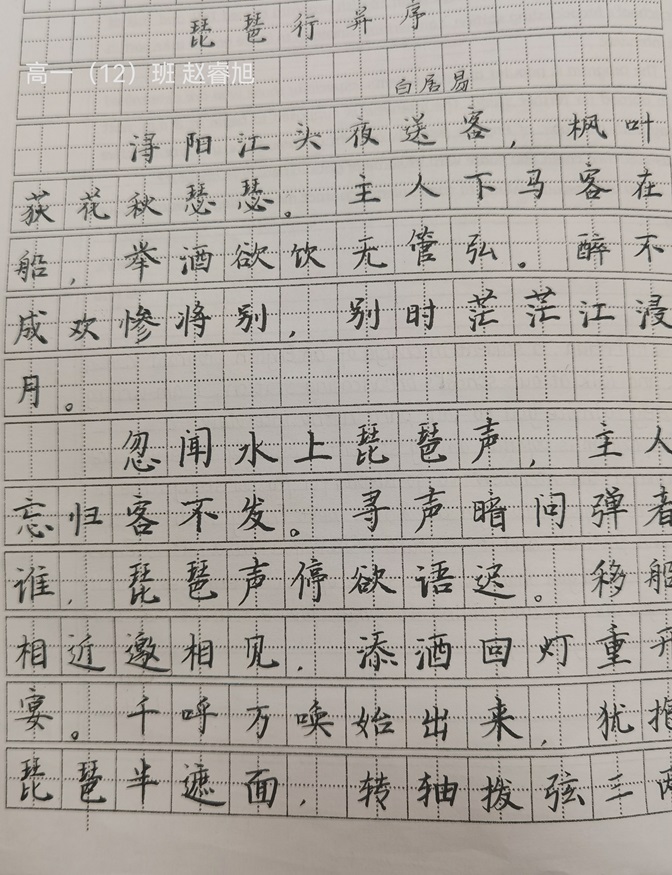 琵琶行并序
高一（12）班 赵睿旭
白居易
浔阳江头夜送客，枫叶
荻花秋瑟瑟。主人下马客在
船，举酒欲饮无管弦。醉不
成欢惨将别，别时茫茫江浸
月。
忽闻水上琵琶声，主人
忘归客不发。寻声暗问弹者
谁，琵琶声停欲语迟。移船
相近邀相见，添酒回灯重开
宴。千呼万唤始出来，犹抱
琵琶半遮面，转轴拨弦三两